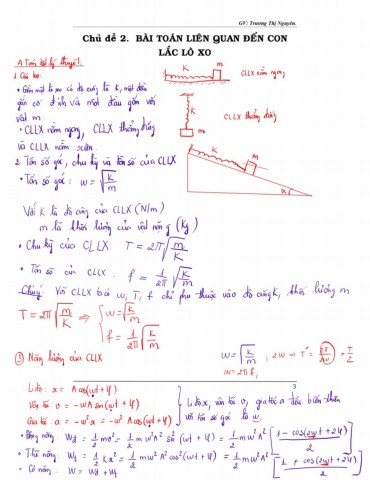 GV: Trương Thị Nguyên.
Chủ đề 2. BÀI TOÁN LIÊN QUAN ĐẾN CON
LẮC LÒ XO
A. Tóm tắt lý thuyết:
1. Cấu tạo:
• Gồm một lò xo có độ cứng là K, một đầu
gắn cố định và một đầu gắn với
vật m.
• CLLX nằm ngang, CLLX thẳng đứng
và CLLX nằm xiên.
K m
CLLX nằm ngang
K
m
CLLX thẳng đứng
K m
α
2. Tần số góc, chu kỳ và tần số của CLLX
• Tần số góc: ω = √(K/m)
Với K là độ cứng của CLLX (N/m)
m là khối lượng của vật nặng (Kg)
• Chu kỳ của CLLX: T = 2π√(m/K)
• Tần số của CLLX: f = 1/2π √(K/m)
Chú ý: Với CLLX thì ω, T, f chỉ phụ thuộc vào độ cứng K, khối lượng m
T = 2π√(m/K) ⇒ { ω = √(K/m)
f = 1/2π √(K/m)
③ Năng lượng của CLLX
ω = √(K/m); 2ω → T' = 2π/2ω = T/2
ω = 2πf;
Li độ: x = A cos(ωt + φ)
Vận tốc v = -ωA sin(ωt + φ)
Gia tốc: a = -ω²x = -ω²A cos(ωt + φ)
Li độ x, vận tốc v, gia tốc a đều biến thiên
với tần số góc là ω
• Động năng: Wđ = 1/2 mv² = 1/2 mω²A² sin²(ωt + φ) = 1/2 mω²A² [1 - cos(2ωt + 2φ)/2]
• Thế năng: Wt = 1/2 Kx² = 1/2 mω²A² cos²(ωt + φ) = 1/2 mω²A² [1 + cos(2ωt + 2φ)/2]
• Cơ năng: W = Wđ + Wt